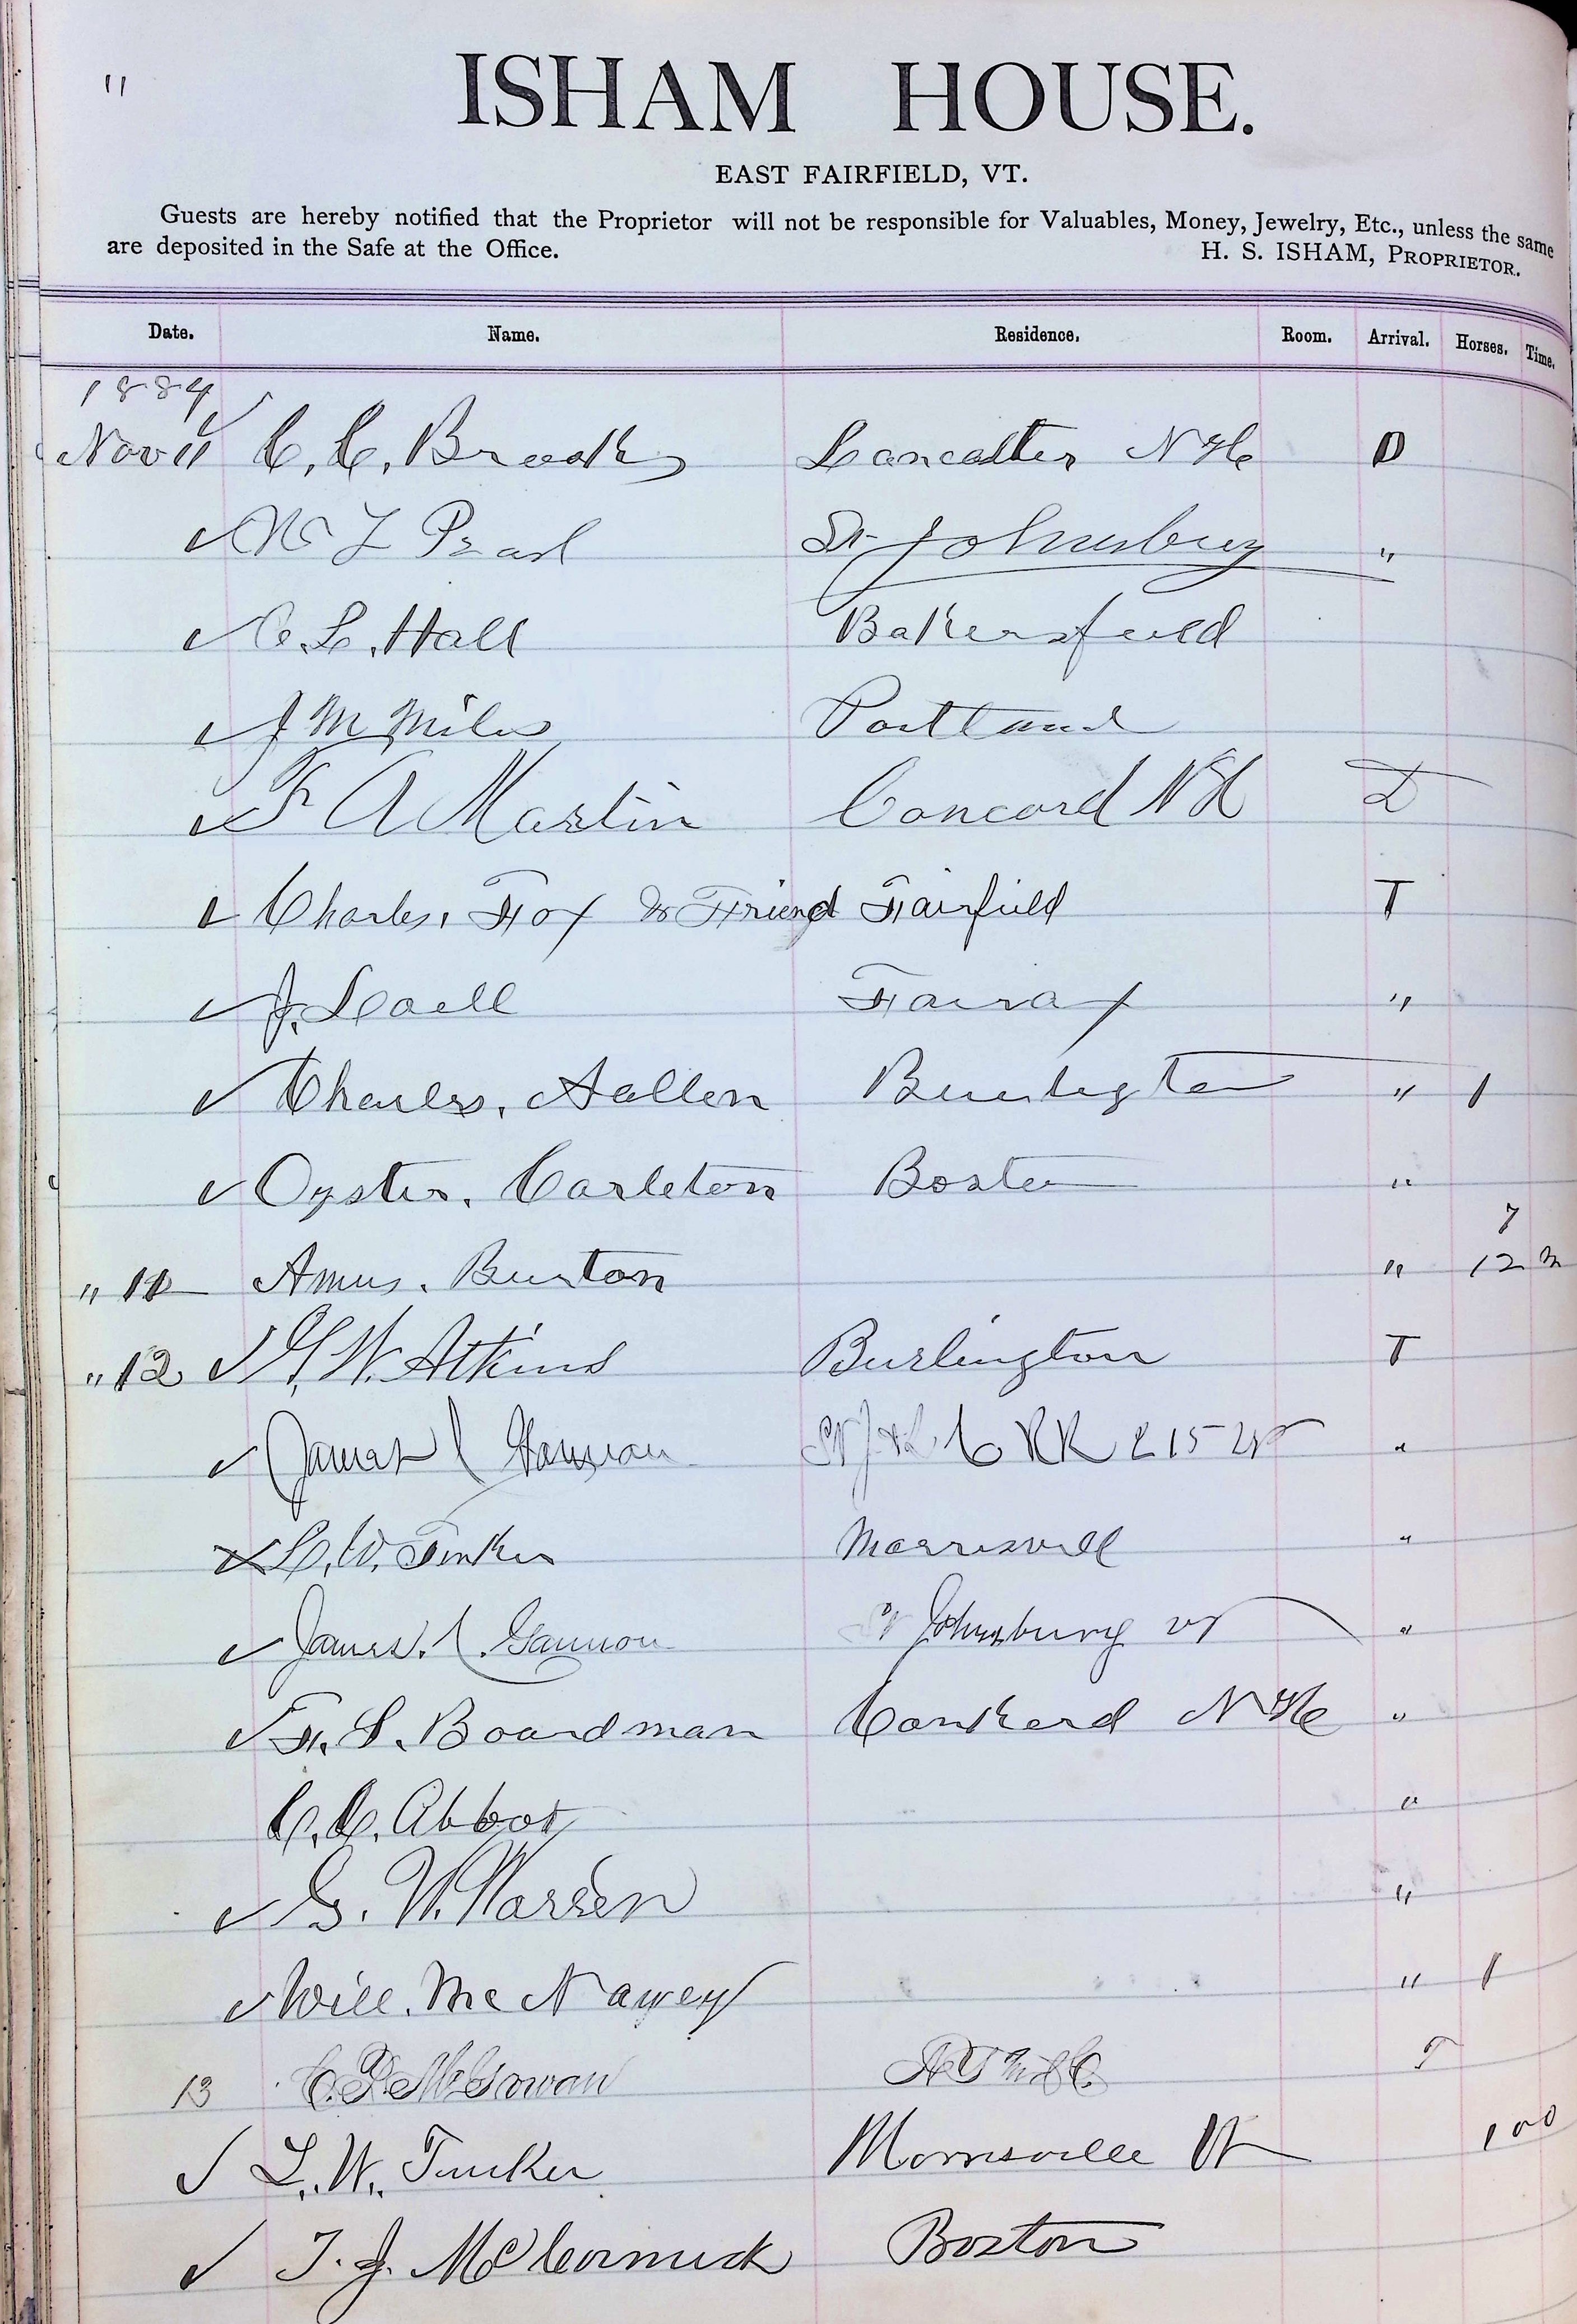 "
ISHAM HOUSE.
EAST FAIRFIELD, VT.
Guests are hereby notified that the Proprietor will not be responsible for Valuables, Money, Jewelry, Etc., unless the same
are deposited in the Safe at the Office. H. S. ISHAM, PROPRIETOR.
Date. Name. Residence. Room. Arrival. Horses. Time.
1884
Nov 11 C. C. Brooks Lancaster N H D
Pearl St Johnsbury "
C. L. Hall Bakersfield
J M Miles Portland
F A Martin Concord N H D
Charles. Fox & Friend Fairfield T
J. Fairax "
Charles. Aallen Burlington " 1
Oyster. Carleton Boston "
7
" 11 Amus. Burton " 12 m
" 12 G. W. Atkins Burlington T
James RR "
L. W. Tinker Morrisvill "
James. Gannon St Johnsbury Vt "
F. S. Boardman Conkerd N H "
C. C. Abbot "
G. W. Warren "
Will. Mc Nayey " 1
13 McGowan T
L. W. Tinker Morrisville Vt 100
T. J. McCormick Boston